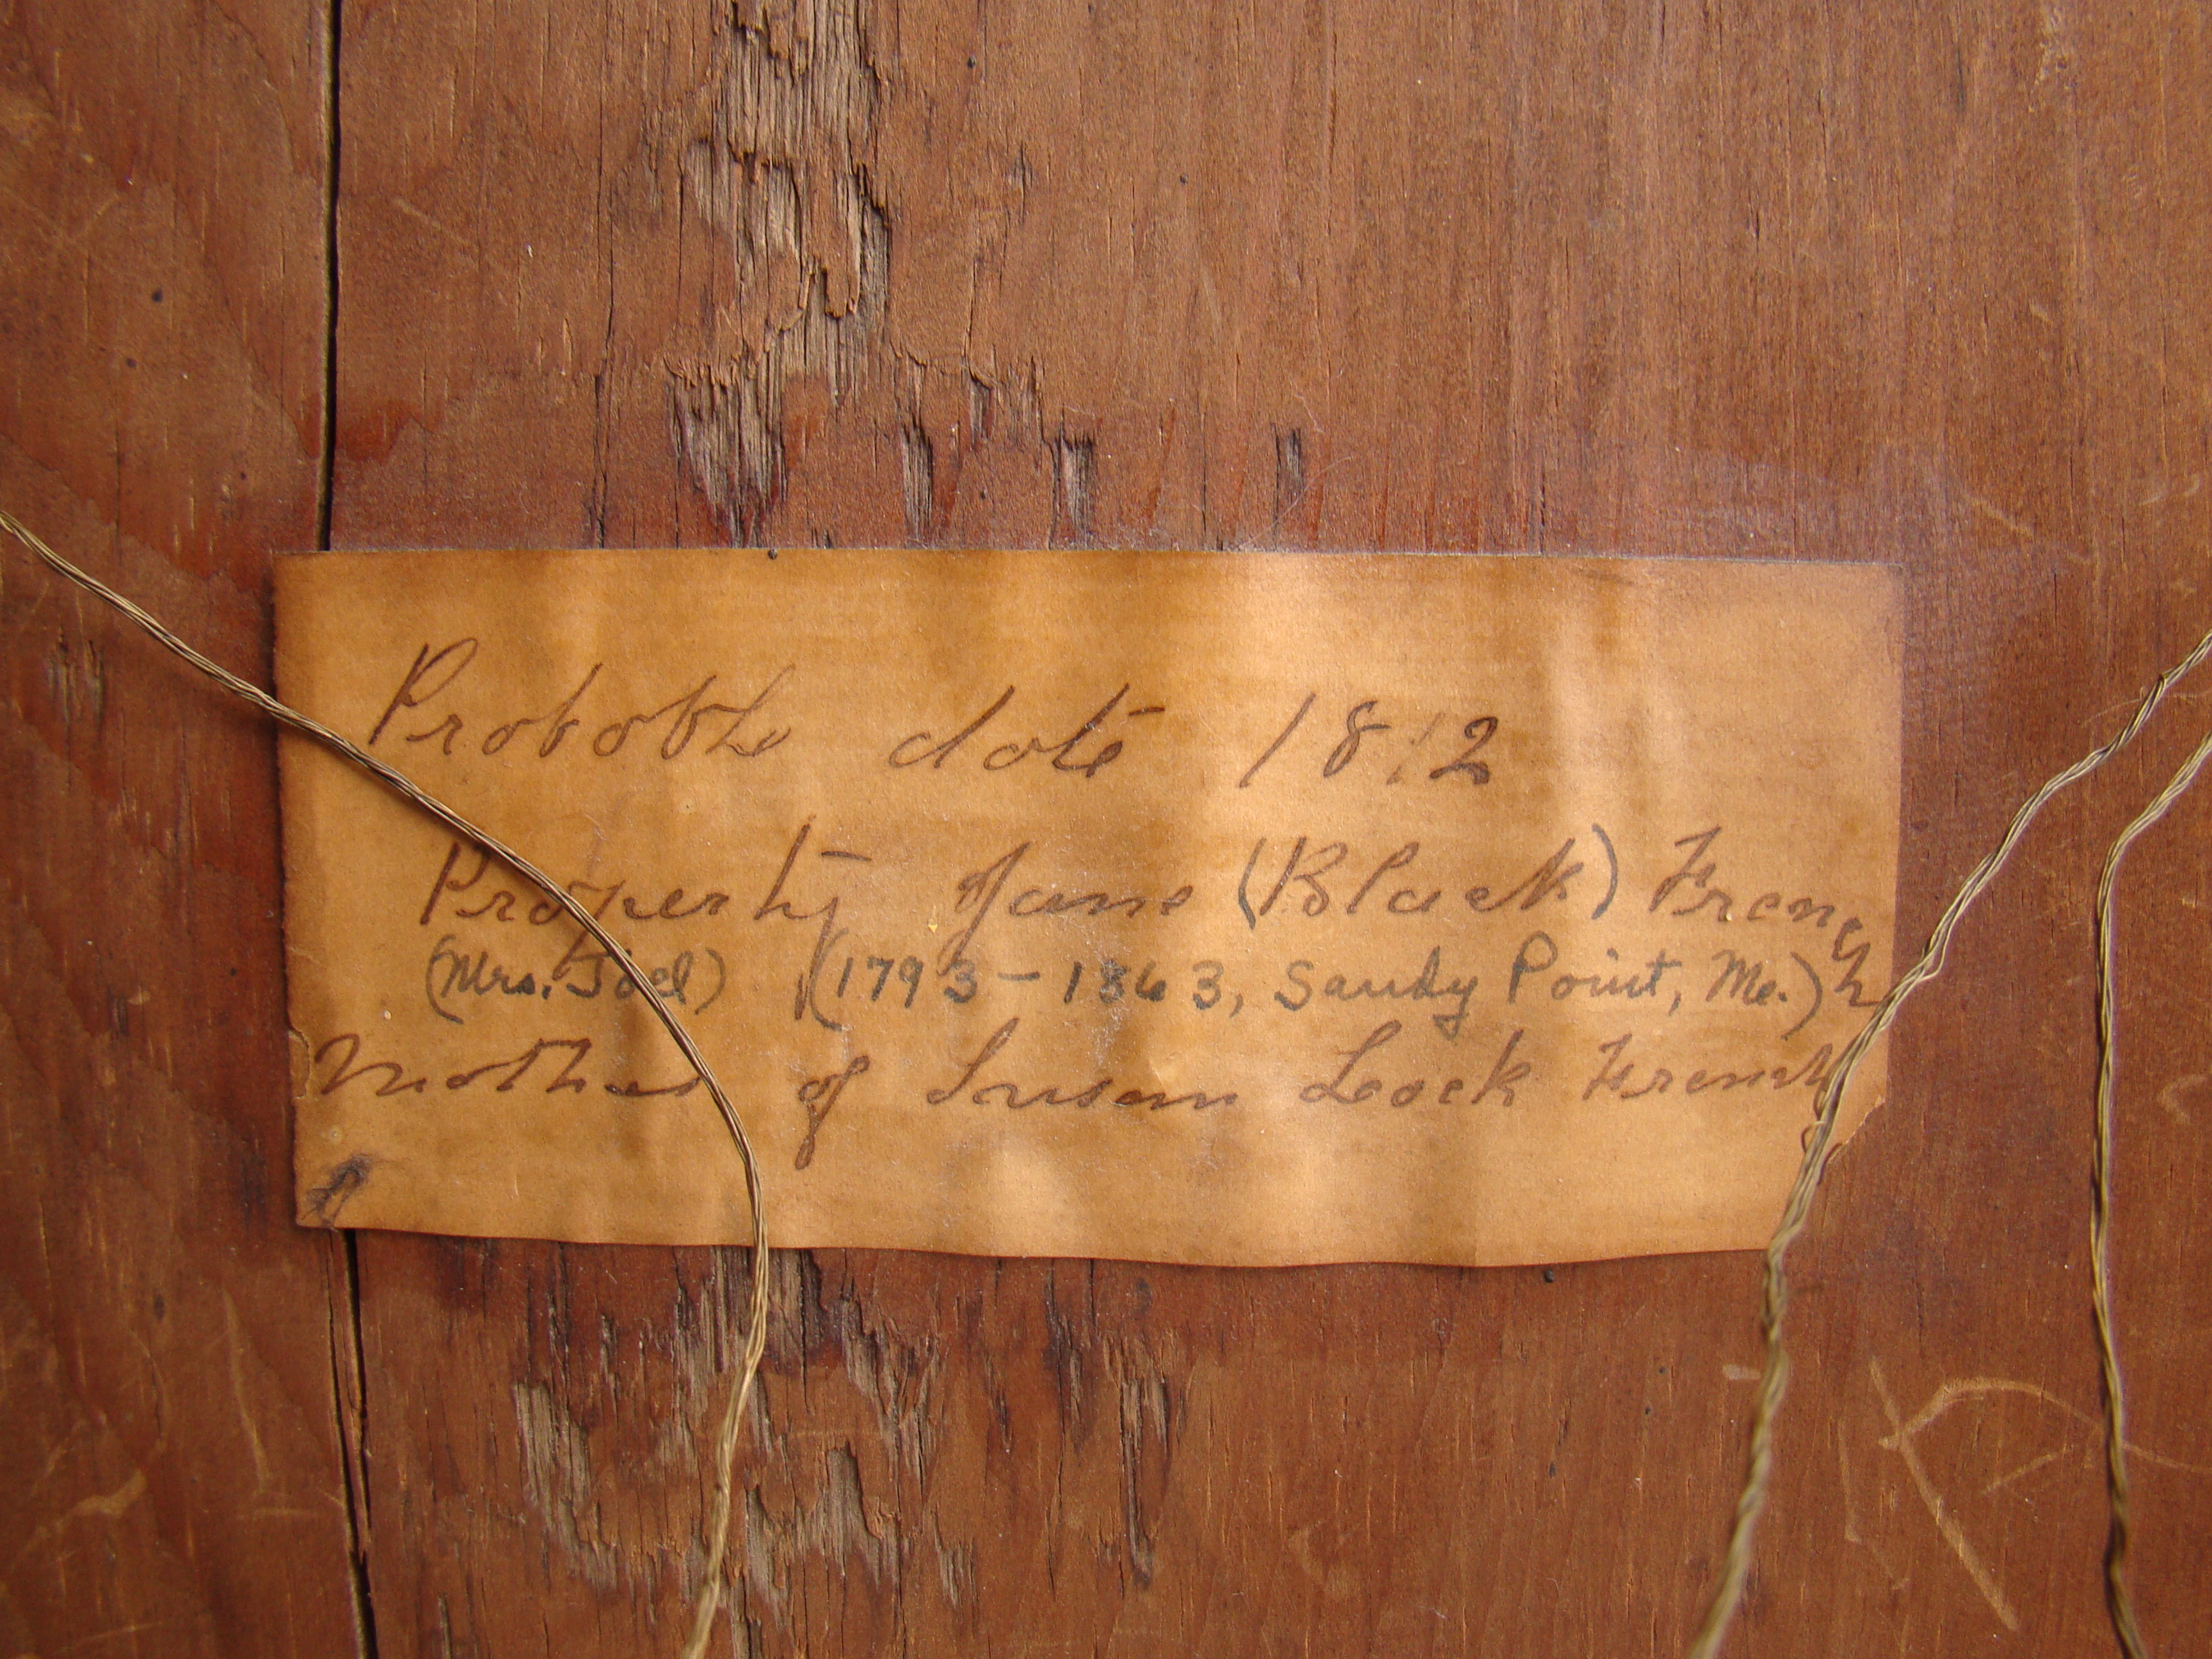 Probable date 1812
Property Jane (Black) French
(Mrs. Joel) (1793-1863, Sandy Point, Me.)
Mother of Susan Lock French